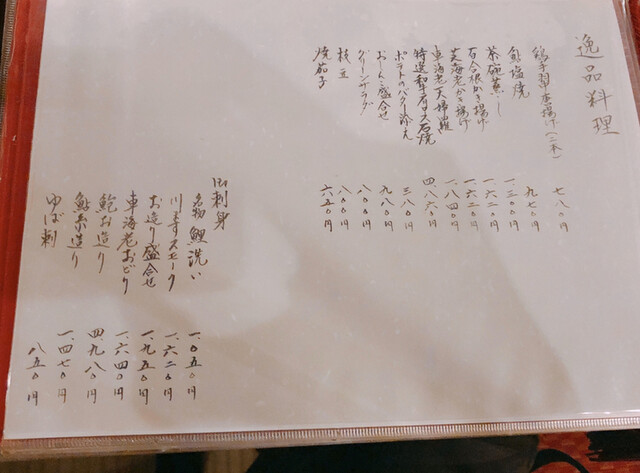 逸品料理
鶏手羽唐揚げ(二本) 七八〇円
鮎塩焼 九七〇円
茶碗蒸し 一、二〇〇円
百合根かき揚げ 一、六二〇円
芝海老かき揚げ 一、六二〇円
車海老天婦羅 一、八四〇円
特選和牛ロース石焼 四、八六〇円
ポテトのバター添え 三八〇円
おしんこ盛合せ 九八〇円
グリーンサラダ 八〇〇円
枝豆 八〇〇円
焼茄子 六五〇円
御刺身
名物 鯉洗い 一、〇五〇円
川ますスモーク 一、六二〇円
お造り盛合せ 一、九五〇円
車海老おどり 一、六四〇円
鮑お造り 四、九八〇円
鮎糸造り 一、四七〇円
ゆば刺 八五〇円